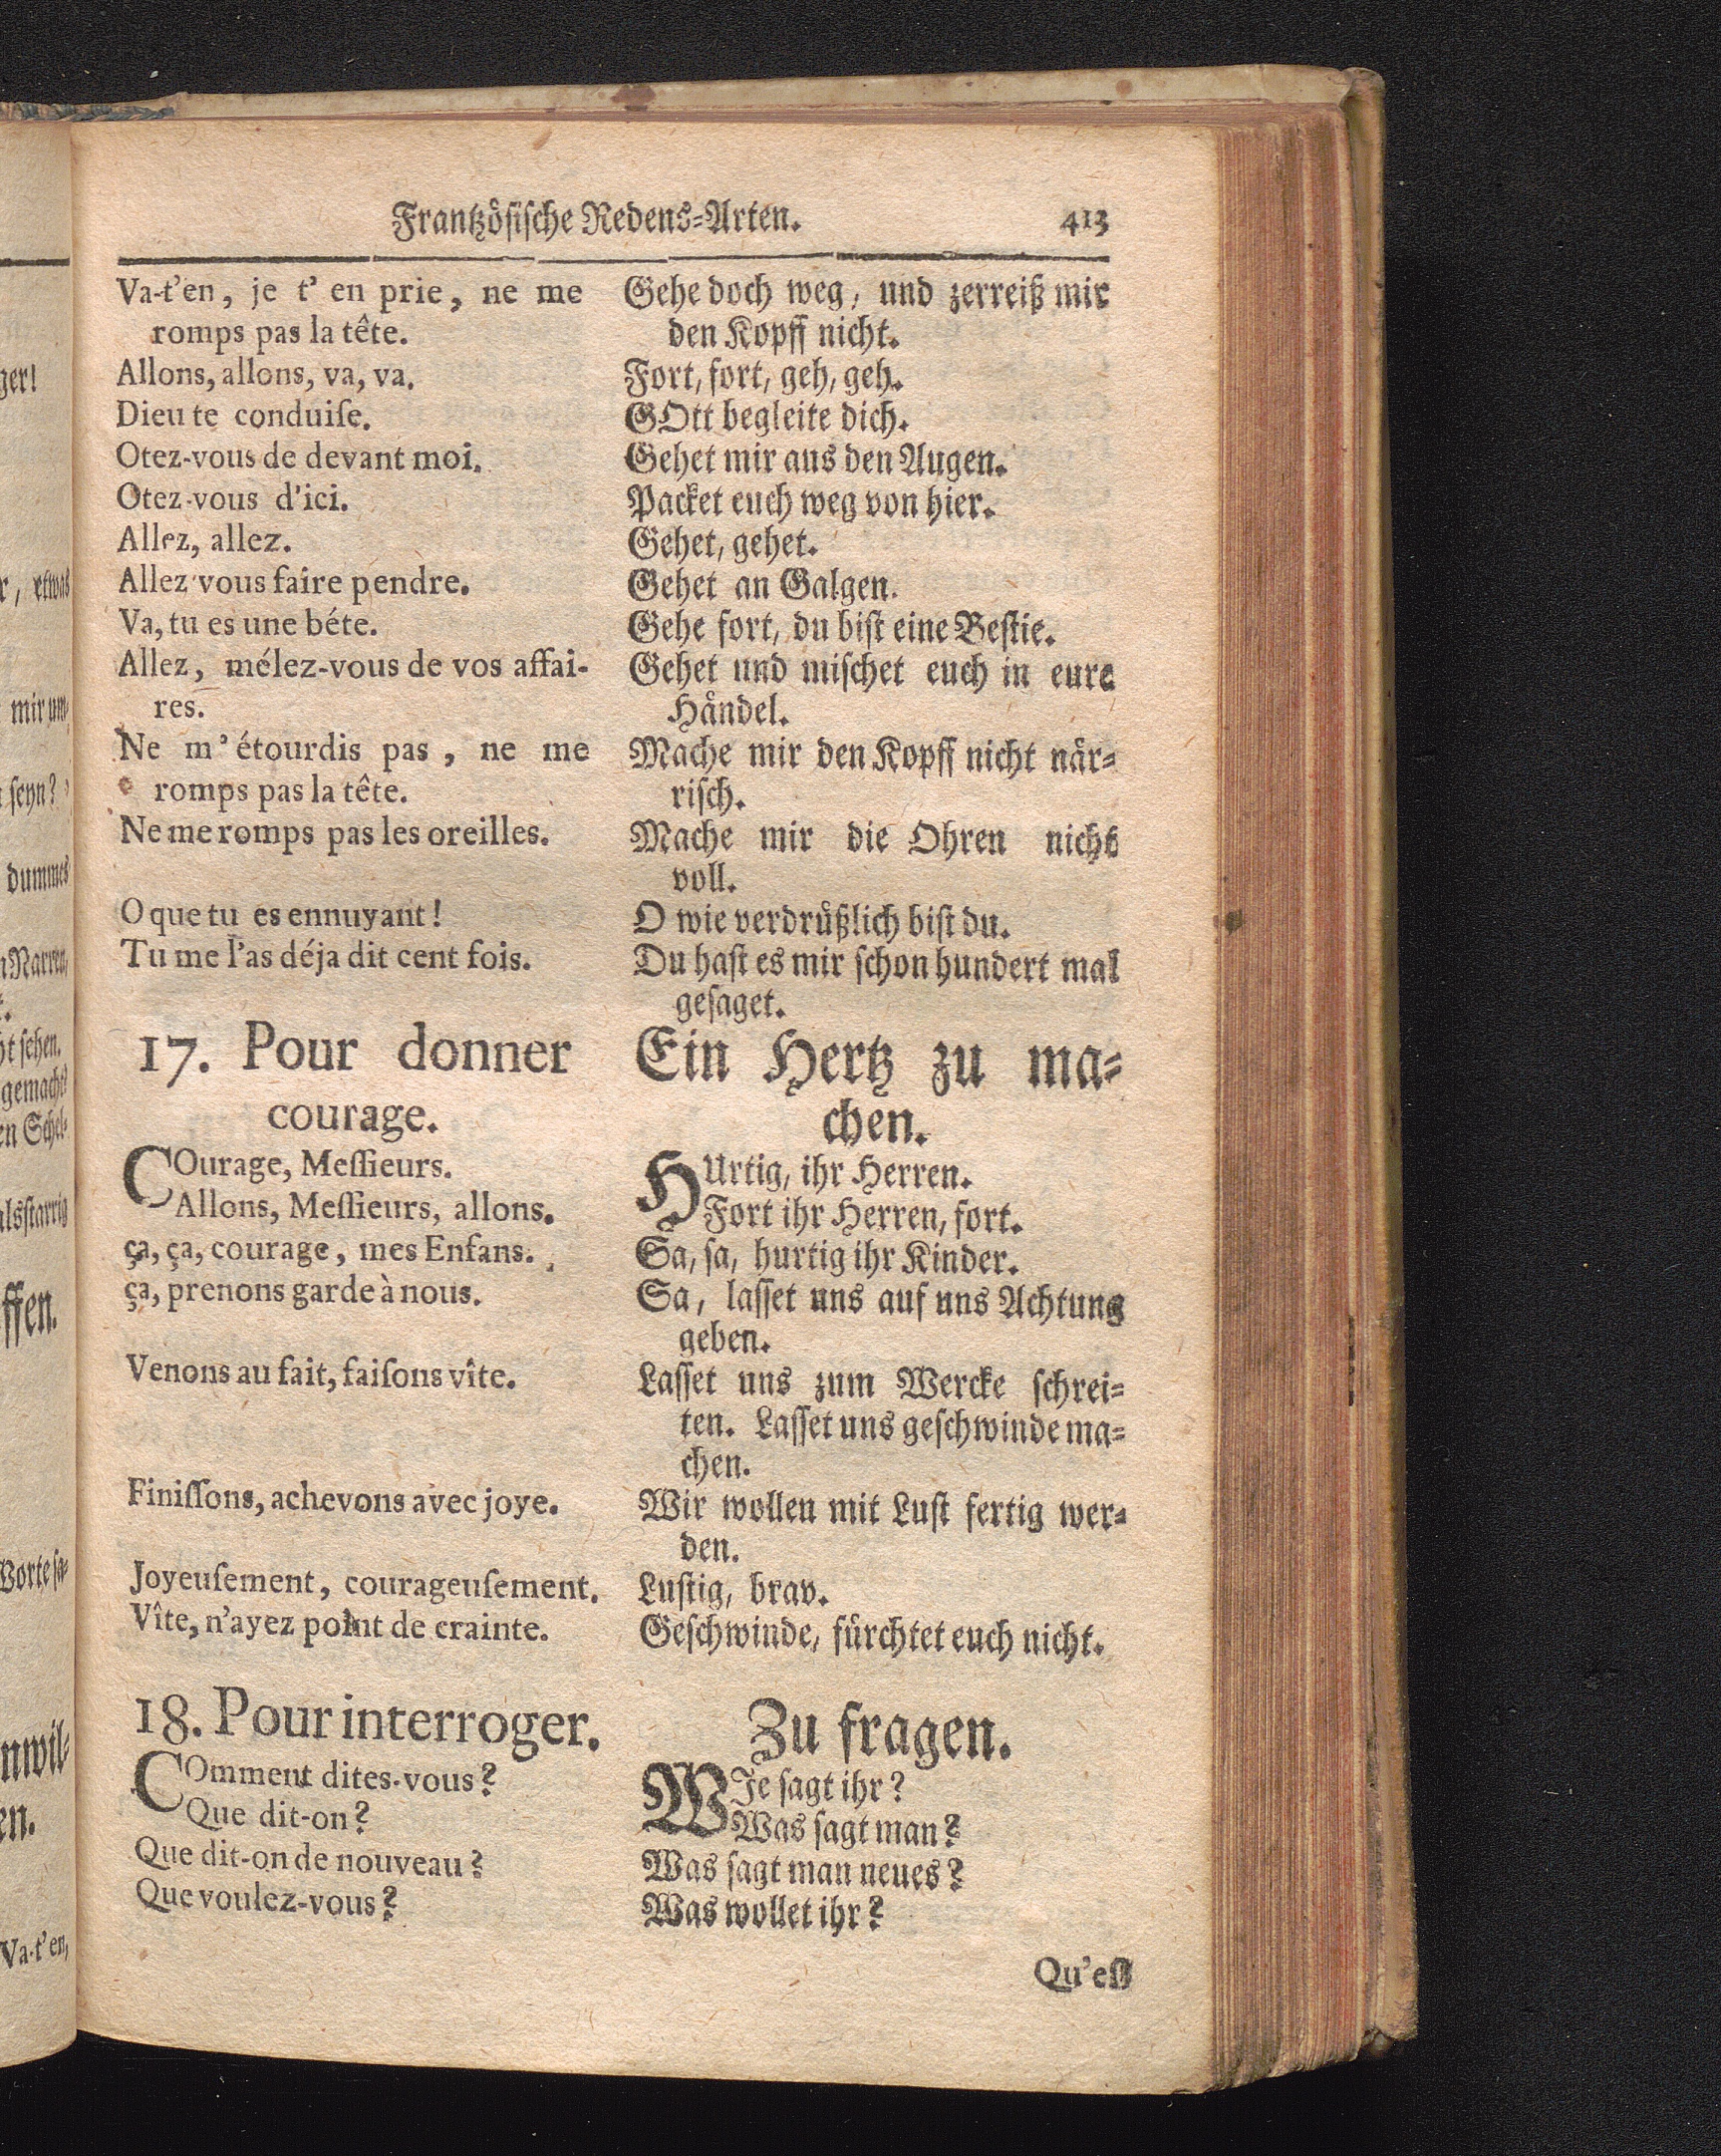 Frantzösische Redens-Arten. 413
Va-t'en, je t' en prie, ne me
romps pas la tête.
Allons, allons, va, va.
Dieu te conduiſe.
Otez-vous de devant moi.
Otez-vous d'ici.
Allez, allez.
Allez vous faire pendre.
Va, tu es une béte.
Allez, mélez-vous de vos affai-
res.
Ne m'étourdis pas, ne me
romps pas la tête.
Ne me romps pas les oreilles.
O que tu es ennuyant!
Tu me l'as déja dit cent fois.
Gehe doch weg, und zerreiß mir
den Kopff nicht.
Fort, fort, geh, geh.
GOtt begleite dich.
Gehet mir aus den Augen.
Packet euch weg von hier.
Gehet, gehet.
Gehet an Galgen.
Gehe fort, du biſt eine Beſtie.
Gehet und miſchet euch in eure
Händel.
Mache mir den Kopff nicht när-
riſch.
Mache mir die Ohren nicht
voll.
O wie verdrüßlich biſt du.
Du haſt es mir ſchon hundert mal
geſaget.
17. Pour donner
courage.
COurage, Meſſieurs.
Allons, Meſſieurs, allons.
ça, ça, courage, mes Enfans.
ça, prenons garde à nous.
Venons au fait, faiſons vîte.
Finiſſons, achevons avec joye.
Joyeuſement, courageuſement.
Vîte, n'ayez point de crainte.
Ein Hertz zu ma-
chen.
HUrtig, ihr Herren.
Fort ihr Herren, fort.
Sa, ſa, hurtig ihr Kinder.
Sa, laſſet uns auf uns Achtung
geben.
Laſſet uns zum Wercke ſchrei-
ten. Laſſet uns geſchwinde ma-
chen.
Wir wollen mit Luſt fertig wer-
den.
Luſtig, brav.
Geſchwinde, fürchtet euch nicht.
18. Pour interroger.
COmment dites-vous?
Que dit-on?
Que dit-on de nouveau?
Que voulez-vous?
Zu fragen.
WIe ſagt ihr?
Was ſagt man?
Was ſagt man neues?
Was wollet ihr?
Qu'eſt